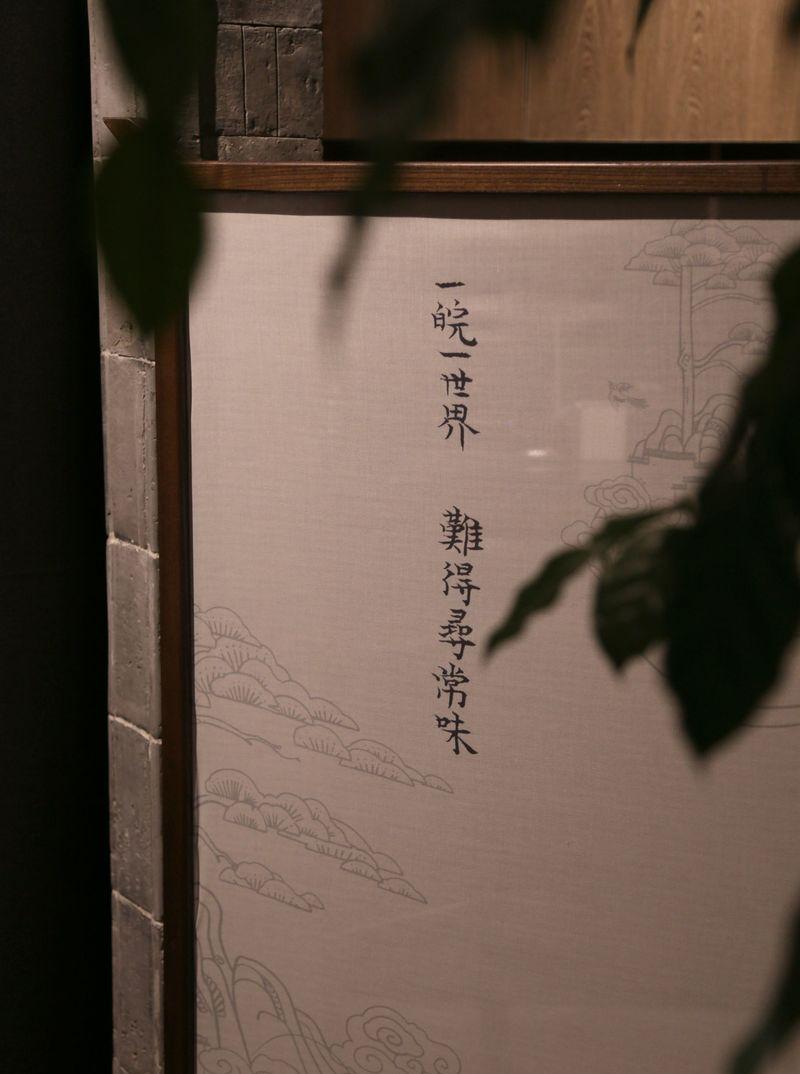 一皖一世界 難得尋常味